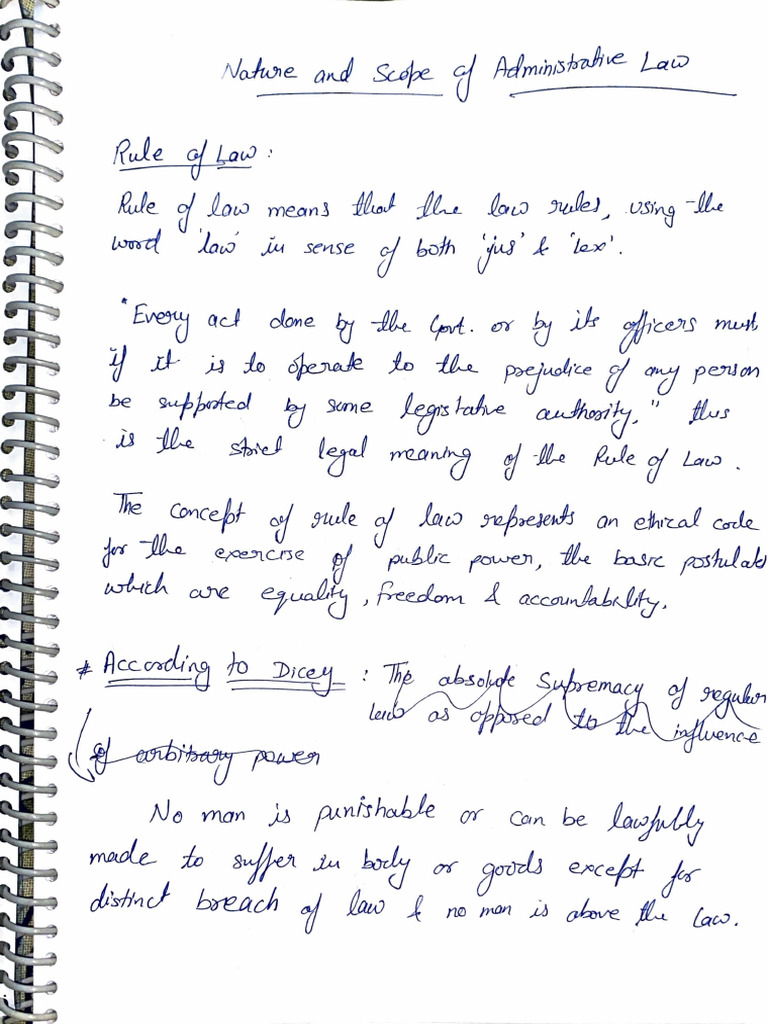 Nature and Scope of Administrative Law
Rule of Law :
Rule of law means that the law rules, using the
word 'law' in sense of both 'jus' & 'lex'.
"Every act done by the Govt. or by its officers must
if it is to operate to the prejudice of any person
be supported by some legislative authority." this
is the strict legal meaning of the Rule of Law.
The concept of rule of law represents an ethical code
for the exercise of public power, the basic postulate
which are equality, freedom & accountability.
* According to Dicey : The absolute Supremacy of regular
law as opposed to the influence
of arbitrary power
No man is punishable or can be lawfully
made to suffer in body or goods except for
distinct breach of law & no man is above the Law.